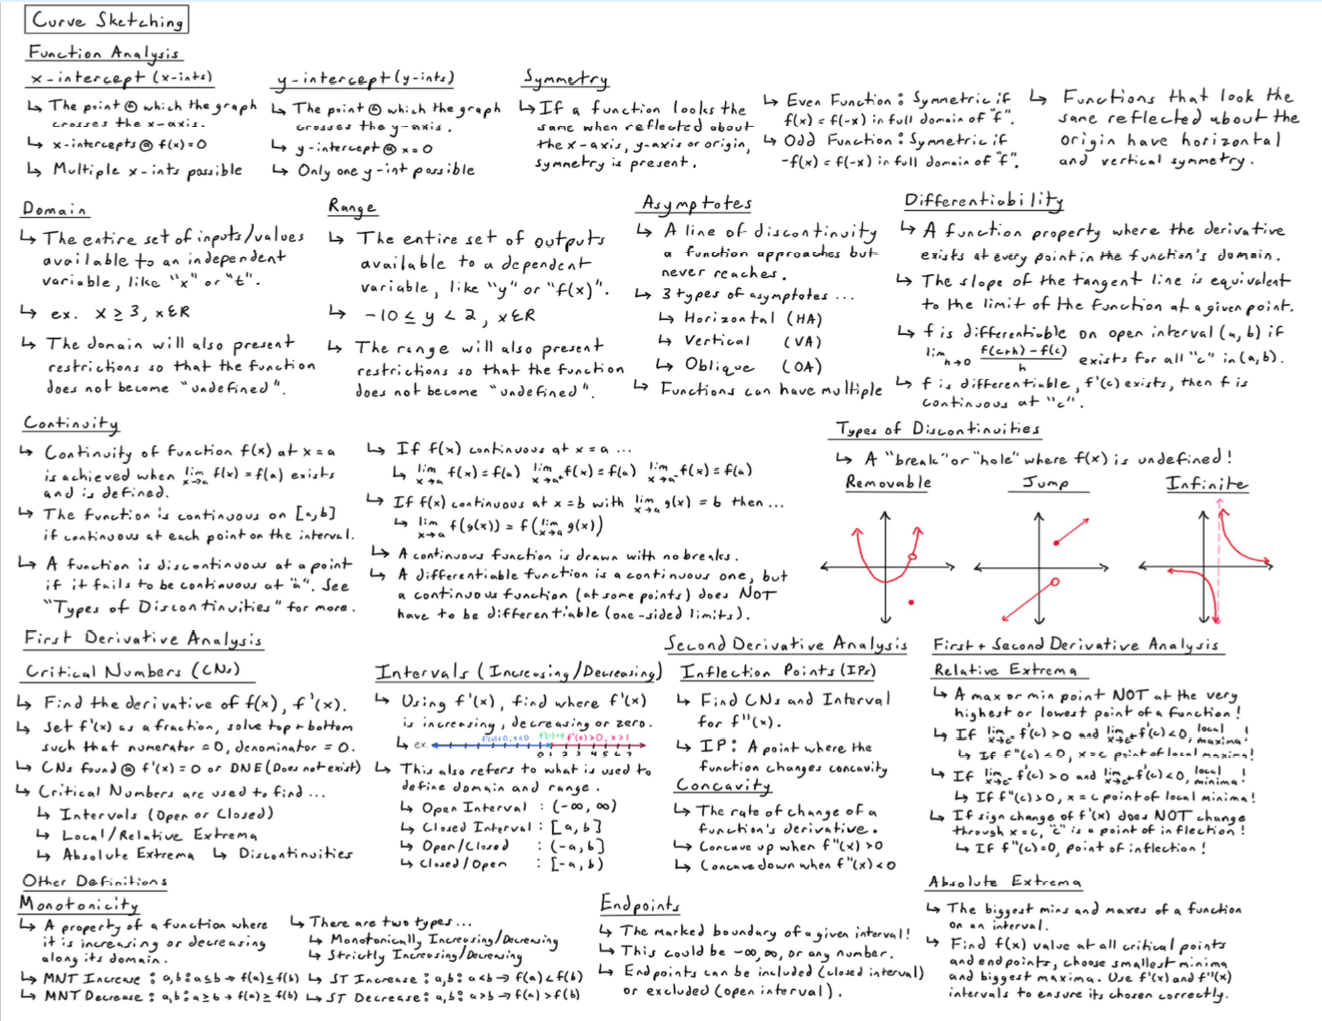 Curve Sketching
Function Analysis
x-intercept (x-ints)
↳ The point @ which the graph
crosses the x-axis.
↳ x-intercepts @ f(x)=0
↳ Multiple x-ints possible
y-intercept (y-ints)
↳ The point @ which the graph
crosses the y-axis.
↳ y-intercept @ x=0
↳ Only one y-int possible
Symmetry
↳ If a function looks the
same when reflected about
the x-axis, y-axis or origin,
symmetry is present.
↳ Even Function: Symmetric if
f(x) = f(-x) in full domain of "f".
↳ Odd Function: Symmetric if
-f(x) = f(-x) in full domain of "f".
↳ Functions that look the
same reflected about the
origin have horizontal
and vertical symmetry.
Domain
↳ The entire set of inputs/values
available to an independent
variable, like "x" or "t".
↳ ex. x ≥ 3, x∈R
↳ The domain will also present
restrictions so that the function
does not become "undefined".
Range
↳ The entire set of outputs
available to a dependent
variable, like "y" or "f(x)".
↳ -10 ≤ y < 2, x∈R
↳ The range will also present
restrictions so that the function
does not become "undefined".
Asymptotes
↳ A line of discontinuity
a function approaches but
never reaches.
↳ 3 types of asymptotes ...
↳ Horizontal (HA)
↳ Vertical (VA)
↳ Oblique (OA)
↳ Functions can have multiple
Differentiability
↳ A function property where the derivative
exists at every point in the function's domain.
↳ The slope of the tangent line is equivalent
to the limit of the function at a given point.
↳ f is differentiable on open interval (a, b) if
lim h→0 f(c+h) - f(c) / h exists for all "c" in (a, b).
↳ f is differentiable, f'(c) exists, then f is
continuous at "c".
Continuity
↳ Continuity of function f(x) at x = a
is achieved when lim x→a f(x) = f(a) exists
and is defined.
↳ The function is continuous on [a,b]
if continuous at each point on the interval.
↳ A function is discontinuous at a point
if it fails to be continuous at "a". See
"Types of Discontinuities" for more.
↳ If f(x) continuous at x = a ...
↳ lim x→a f(x) = f(a) lim x→a⁺ f(x) = f(a) lim x→a⁻ f(x) = f(a)
↳ If f(x) continuous at x = b with lim x→a g(x) = b then ...
↳ lim x→a f(g(x)) = f(lim x→a g(x))
↳ A continuous function is drawn with no breaks.
↳ A differentiable function is a continuous one, but
a continuous function (at some points) does NOT
have to be differentiable (one-sided limits).
Types of Discontinuities
↳ A "break" or "hole" where f(x) is undefined!
Removable
Jump
Infinite
First Derivative Analysis
Critical Numbers (CNs)
↳ Find the derivative of f(x), f'(x).
↳ Set f'(x) as a fraction, solve top + bottom
such that numerator = 0, denominator = 0.
↳ CNs found @ f'(x) = 0 or DNE (Does not exist)
↳ Critical Numbers are used to find ...
↳ Intervals (Open or Closed)
↳ Local/Relative Extrema
↳ Absolute Extrema ↳ Discontinuities
Intervals (Increasing/Decreasing)
↳ Using f'(x), find where f'(x)
is increasing, decreasing or zero.
↳ ex. f'(x)<0, x<0 f'(x)=0 f'(x)>0, x>1
0 1 2 3 4 5 6 7
↳ This also refers to what is used to
define domain and range.
↳ Open Interval : (-∞, ∞)
↳ Closed Interval : [a, b]
↳ Open/Closed : (-a, b]
↳ Closed/Open : [-a, b)
Second Derivative Analysis
Inflection Points (IPs)
↳ Find CNs and Interval
for f"(x).
↳ IP: A point where the
function changes concavity
Concavity
↳ The rate of change of a
function's derivative.
↳ Concave up when f"(x) >0
↳ Concave down when f"(x) <0
First + Second Derivative Analysis
Relative Extrema
↳ A max or min point NOT at the very
highest or lowest point of a function!
↳ If lim x→c⁻ f'(c) >0 and lim x→c⁺ f'(c) <0, local maxima!
↳ If f"(c) <0, x=c point of local maxima!
↳ If lim x→c⁻ f'(c) >0 and lim x→c⁺ f'(c) <0, local minima!
↳ If f"(c) >0, x = c point of local minima!
↳ If sign change of f'(x) does NOT change
through x=c, "c" is a point of inflection!
↳ If f"(c)=0, point of inflection!
Other Definitions
Monotonicity
↳ A property of a function where
it is increasing or decreasing
along its domain.
↳ MNT Increase : a,b: a≤b → f(a)≤f(b)
↳ MNT Decrease : a,b: a≥b → f(a)≥f(b)
↳ There are two types...
↳ Monotonically Increasing/Decreasing
↳ Strictly Increasing/Decreasing
↳ ST Increase: a,b: a<b → f(a)<f(b)
↳ ST Decrease: a,b: a>b → f(a)>f(b)
Endpoints
↳ The marked boundary of a given interval!
↳ This could be -∞, ∞, or any number.
↳ Endpoints can be included (closed interval)
or excluded (open interval).
Absolute Extrema
↳ The biggest mins and maxes of a function
on an interval.
↳ Find f(x) value at all critical points
and endpoints, choose smallest minima
and biggest maxima. Use f'(x) and f"(x)
intervals to ensure its chosen correctly.